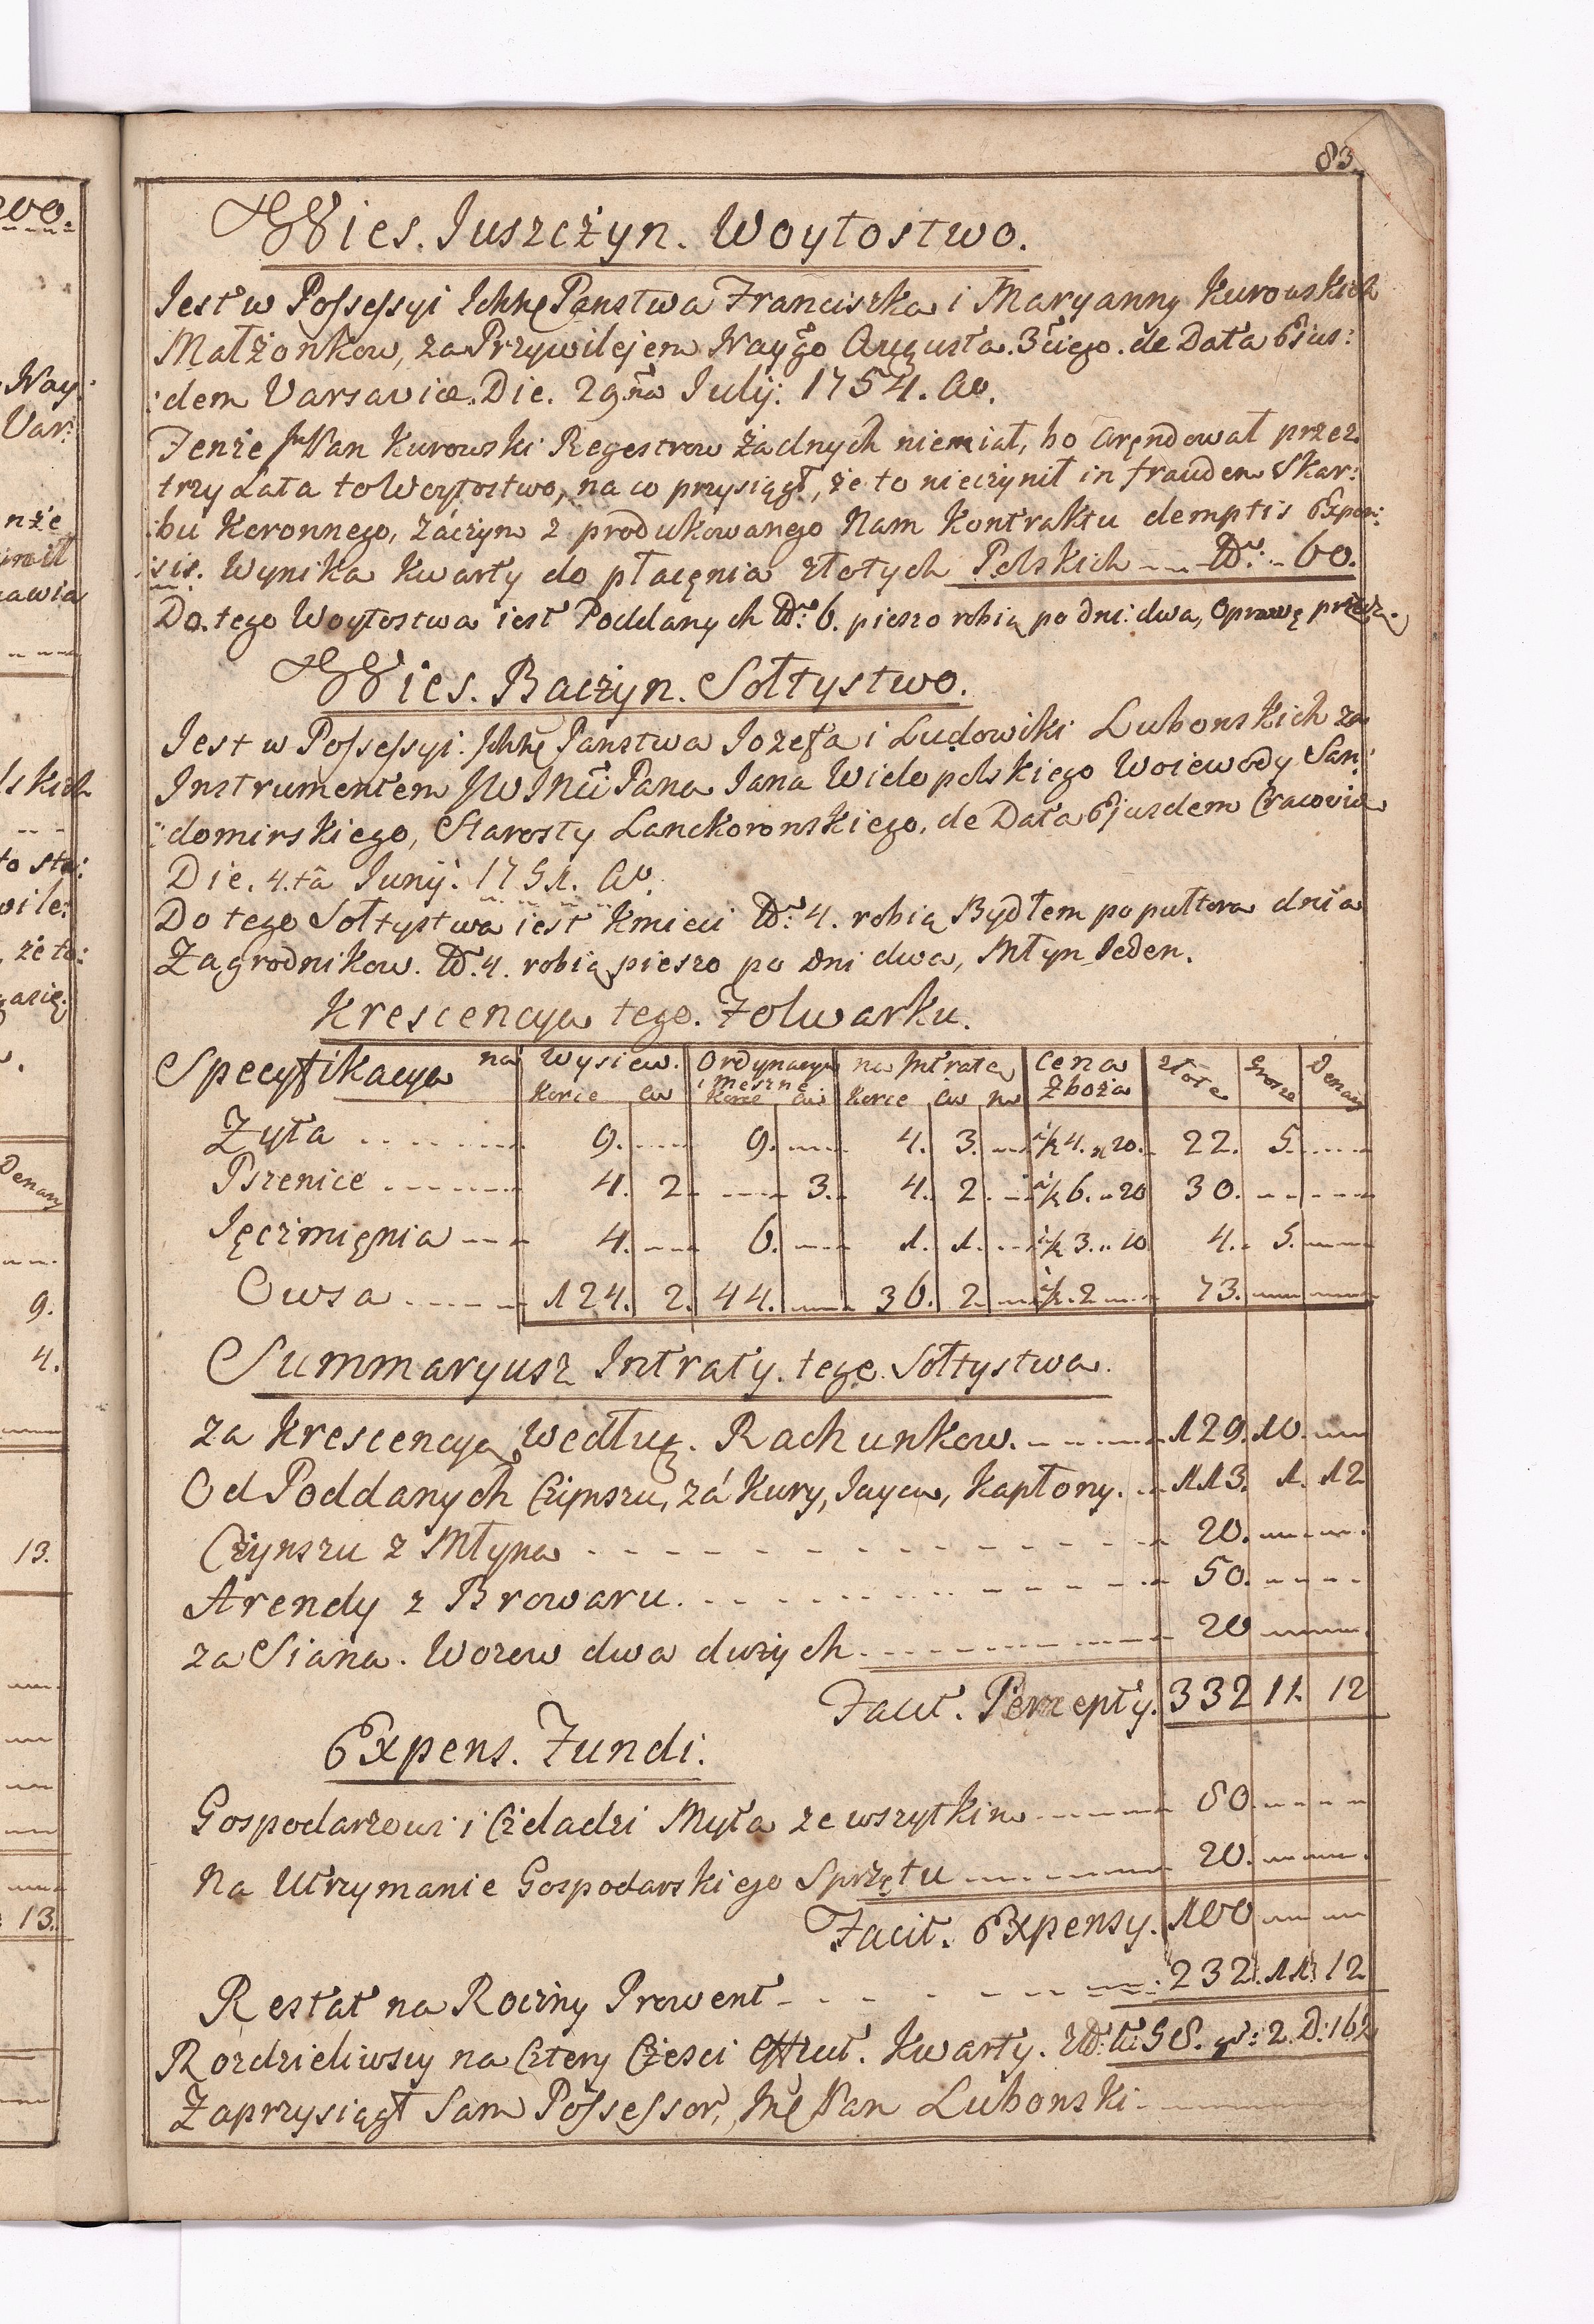 83.
Wies. Juszczyn. Woytostwo.
Jest w Possessyi Ichhę Panstwa Franciszka i Maryanny Kurowskich
Małżonkow, za Przywilejem Nayggo Augusta. 3ciego. de Data Ejus:
:dem Varsaviæ. Die. 29.na July: 1754. Ao.
Tenże Jm Pan Kurowski Regestrow żadnych niemiał, bo Aręndował przez
trzy Lata to Woytostwo, na co przysiągł, że to nieczynił in fraudem Skar:
:bu Koronnego, záczym z produkowanego Nam Kontraktu demptis Expen:
:sis. Wynika Kwarty do płacęnia złotych Polskich --- No: -- 60.
Do. tego Woytostwa iest Poddanych No: 6. pieszo robią po dni: dwa, Oprawę przędz.
Wies. Baczyn. Sołtystwo.
Jest w Possessyi. Ichhę Panstwa Jozefa i Ludowiki Lubonskich za
Instrumentem JWJmci Pana Jana Wielopolskiego Woiewody San:
:domirskiego, Starosty Lanckoronskiego, de Data Ejusdem Cracoviæ
Die. 4.tâ Junij: 1751. Ao.
Do tego Sołtystwa iest Kmieci No: 4. robią Bydłem po pułtora dnia
Zagrodnikow. No. 4. robią pieszo po Dni dwa, Młyn Jeden.
Krescencya tego. Folwarku.
Specyfikacya na Wysiew. Ordynaryą i Meszne na Intratę Cena Zboża złote Grosze Denary
Korce Cw Korce Cwi Korce Cw
Zyta ........ 9. ---- 9. ---- 4. 3. --- 4. 20. 22. 5. ----
Pszenice ........ 4. 2. ---- 3. 4. 2. --- 6. 20 30. ---- ----
Jęczmięnia --- 4. --- 6. --- 1. 1. --- 3. 10 4. 5. ----
Owsa ........ 124. 2. 44. ---- 36. 2. --- 2 --- 73. ---- ----
Summaryusz Intraty. tego. Sołtystwa.
za Krescencyą Według. Rachunkow. ------ 129. 10. ---
Od Poddanych Czipnszu, zá Kury, Jayca, Kapłony. -- 113. 1. 12
Czynszu z Młyna - - - - - - - - 20. ---- ---
Arendy z Browaru. ........ 50. ---- --
za Siana. Wozow dwa dużych. -------- 20 ---- ---
Facit. Percepty. 332 11. 12
Expens. Fundi.
Gospodarzowi i Czeladzi Myta ze wszytkim ------ 80. ---- --
Na Utrzymanie Gospodarskiego Sprzętu -------- 20. ---- ---
Facit. Expensy. 100 --- ---
Restat na Roczny Prowent - - - - - - 232. 11. 12
Rozdzieliwszy na Cztery Części Kwarty. 58. gr: 2. D: 16½
Zaprzysiągł Sam Possessor, Jmę Pan Lubonski. ------